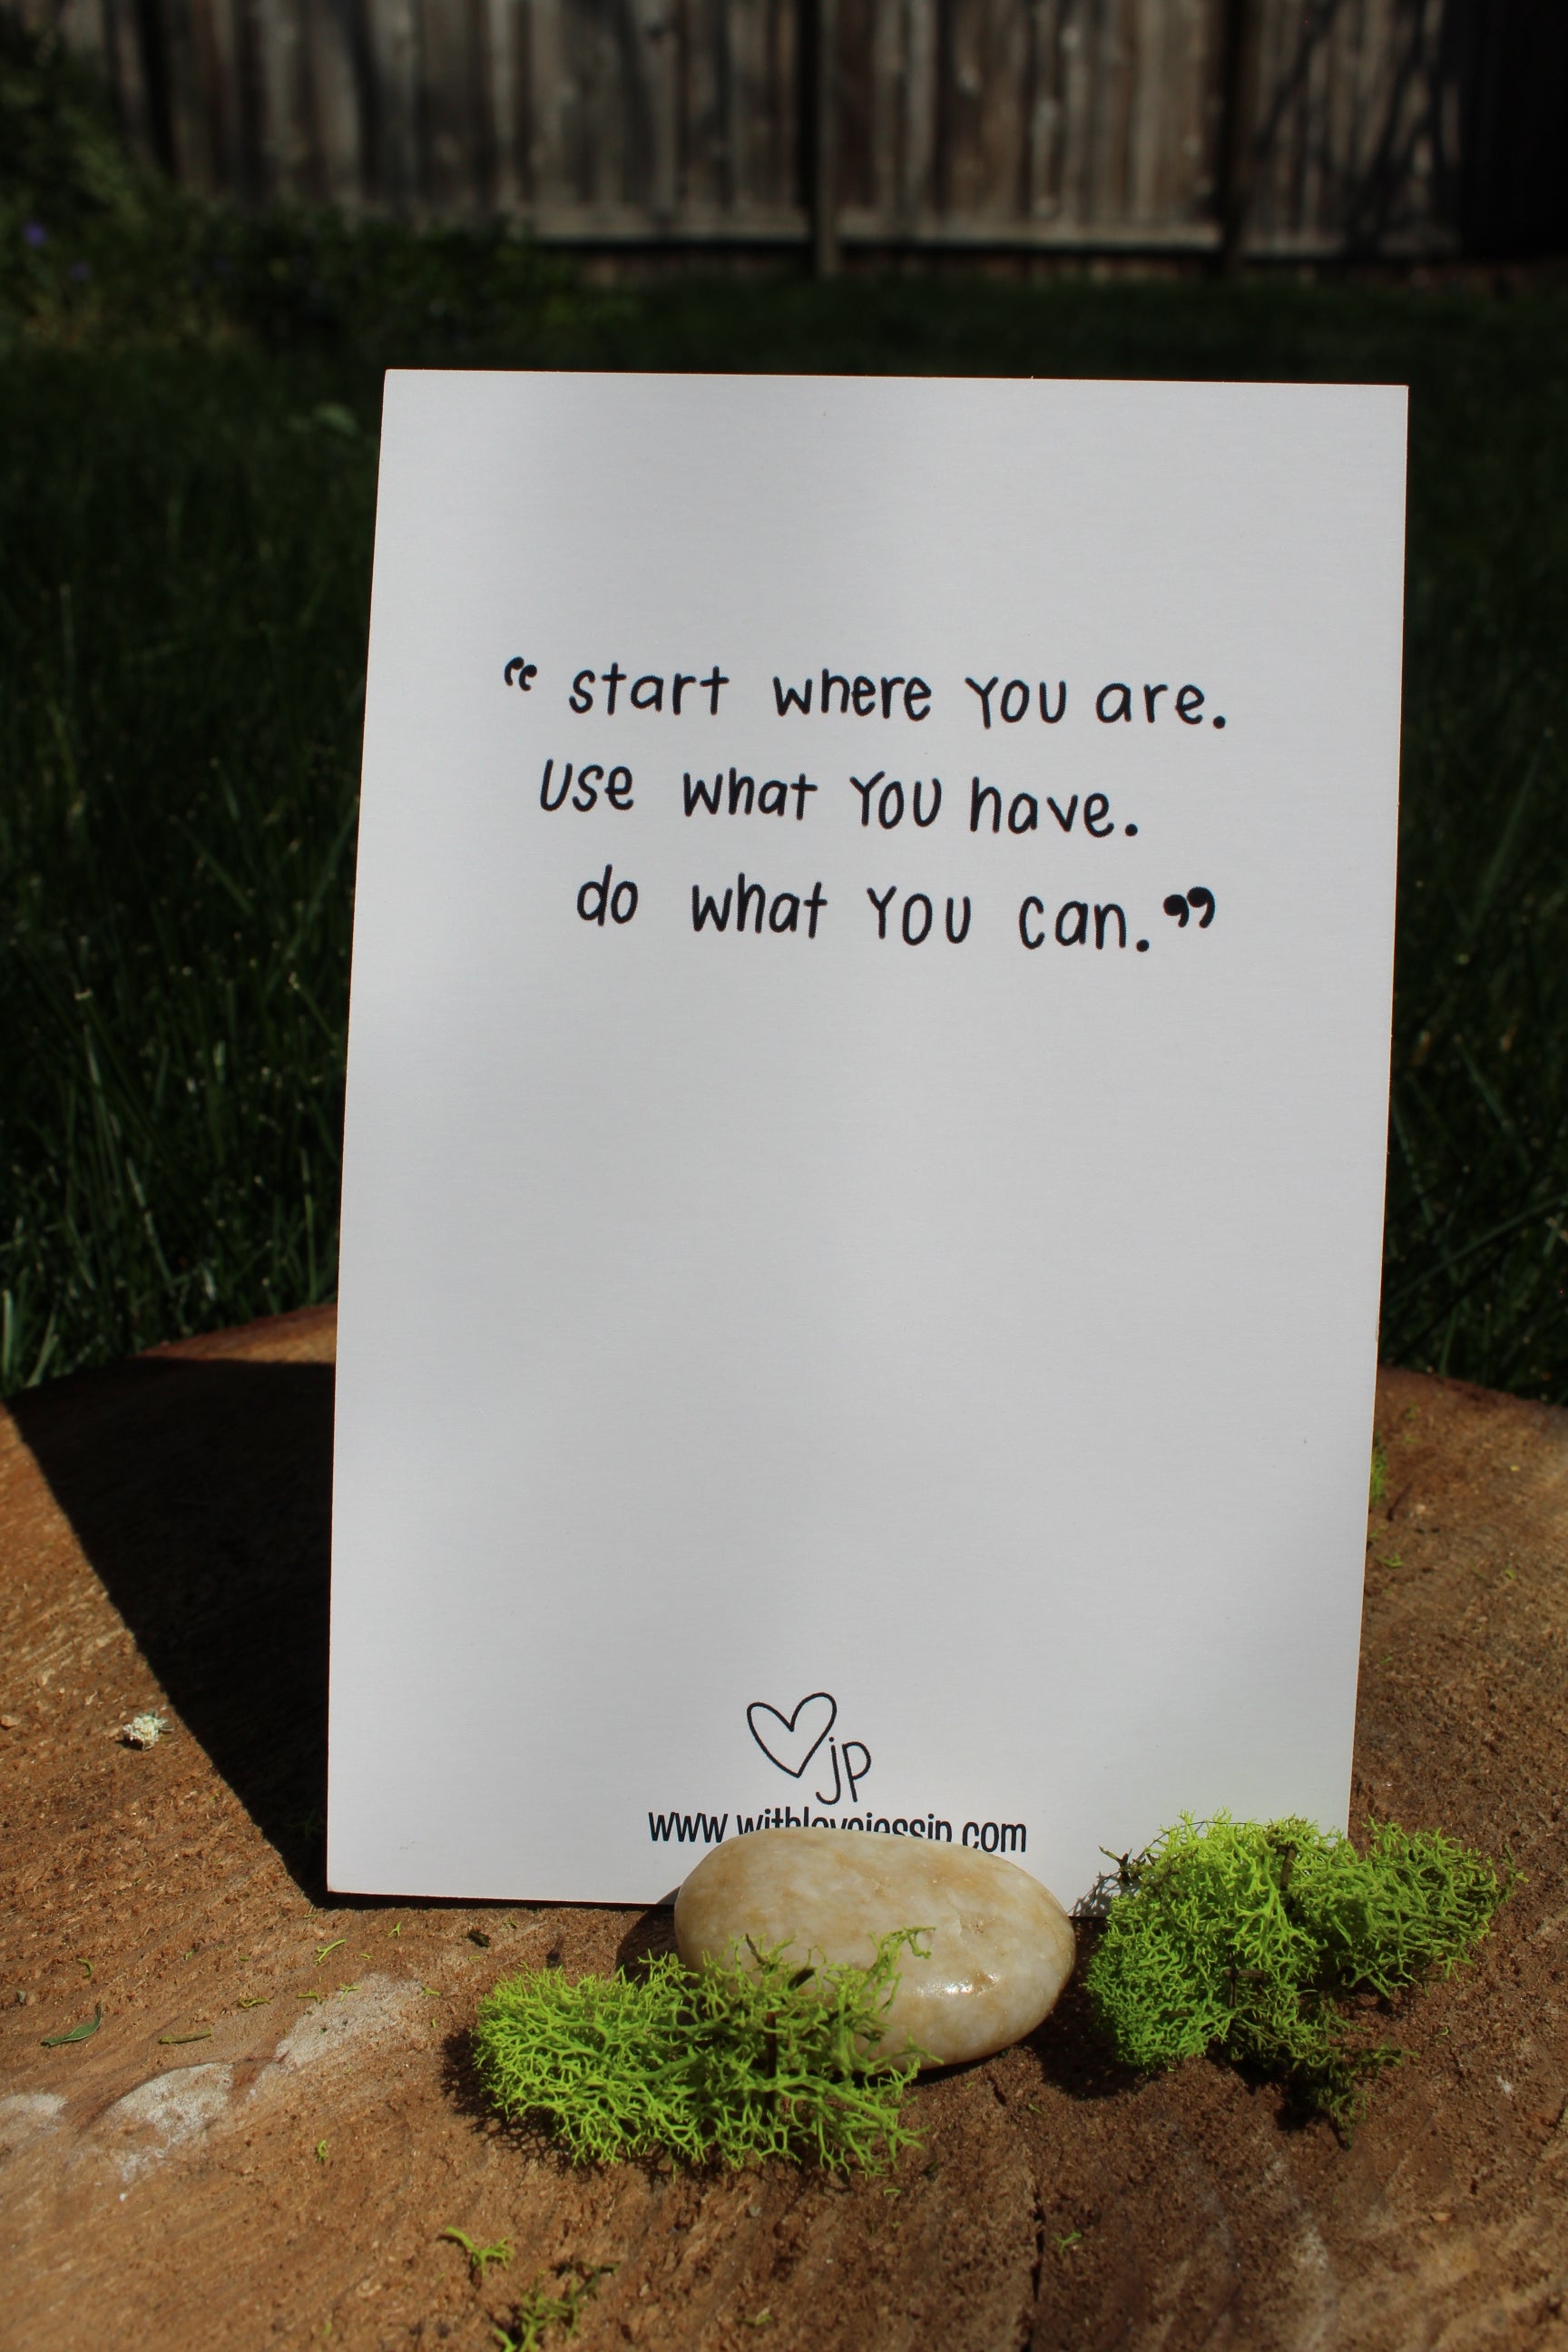 “ start where you are.
use what you have.
do what you can.”
jp
www.withlovejessip.com